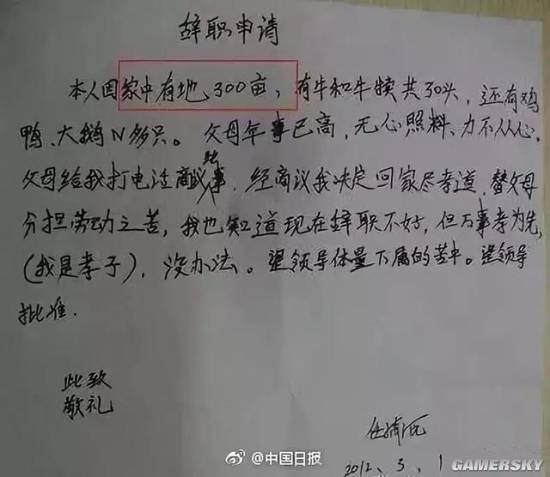 辞职申请
本人因家中有地300亩，有牛和牛犊共30头，还有鸡
鸭、大鹅N多只。父母年事已高，无心照料、力不从心。
父母给我打电话商议此事，经商议我决定回家尽孝道，替父母
分担劳动之苦，我也知道现在辞职不好，但万事孝为先，
(我是孝子)，没办法。望领导体量下属的苦中。望领导
批准.
此致
敬礼
2012、3、1
@中国日报
GAMERSKY